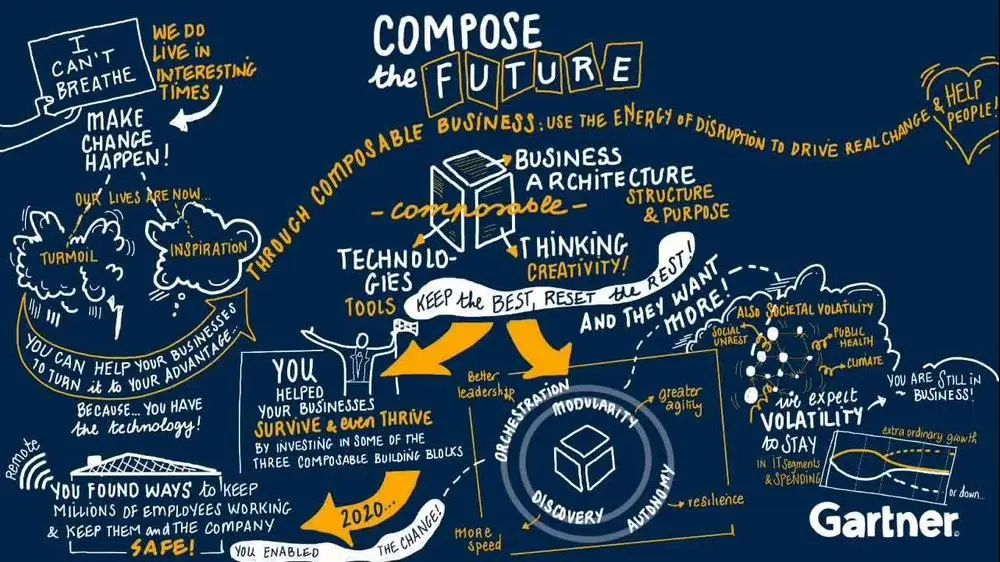 I
CAN'T
BREATHE
WE DO
LIVE IN
INTERESTING
TIMES
MAKE
CHANGE
HAPPEN!
OUR LIVES ARE NOW...
TURMOIL
INSPIRATION
YOU CAN HELP YOUR BUSINESSES
TO TURN it to YOUR ADVANTAGE...
BECAUSE... YOU HAVE
the technology!
COMPOSE
the FUTURE
THROUGH COMPOSABLE BUSINESS: USE THE ENERGY OF DISRUPTION TO DRIVE REAL CHANGE & HELP
PEOPLE!
BUSINESS
ARCHITECTURE
STRUCTURE
& PURPOSE
- composable -
TECHNOLO-
GIES
TOOLS
THINKING
CREATIVITY!
KEEP the BEST, RESET the REST!
AND THEY WANT
MORE!
YOU
HELPED
YOUR BUSINESSES
SURVIVE & even THRIVE
BY INVESTING IN SOME OF THE
THREE COMPOSABLE BUILDING BLOCKS
2020...
Remote
YOU FOUND WAYS to KEEP
MILLIONS OF EMPLOYEES WORKING
& KEEP THEM and THE COMPANY
SAFE!
YOU ENABLED THE CHANGE!
Better
leadership
greater
agility
ORCHESTRATION
MODULARITY
DISCOVERY
AUTONOMY
more
speed
resilience
ALSO SOCIETAL VOLATILITY
SOCIAL
UNREST
PUBLIC
HEALTH
CLIMATE
we expect
VOLATILITY
to STAY
IN IT Segments
& SPENDING
YOU ARE STILL IN
~ BUSINESS!
extra ordinary growth
or down...
Gartner